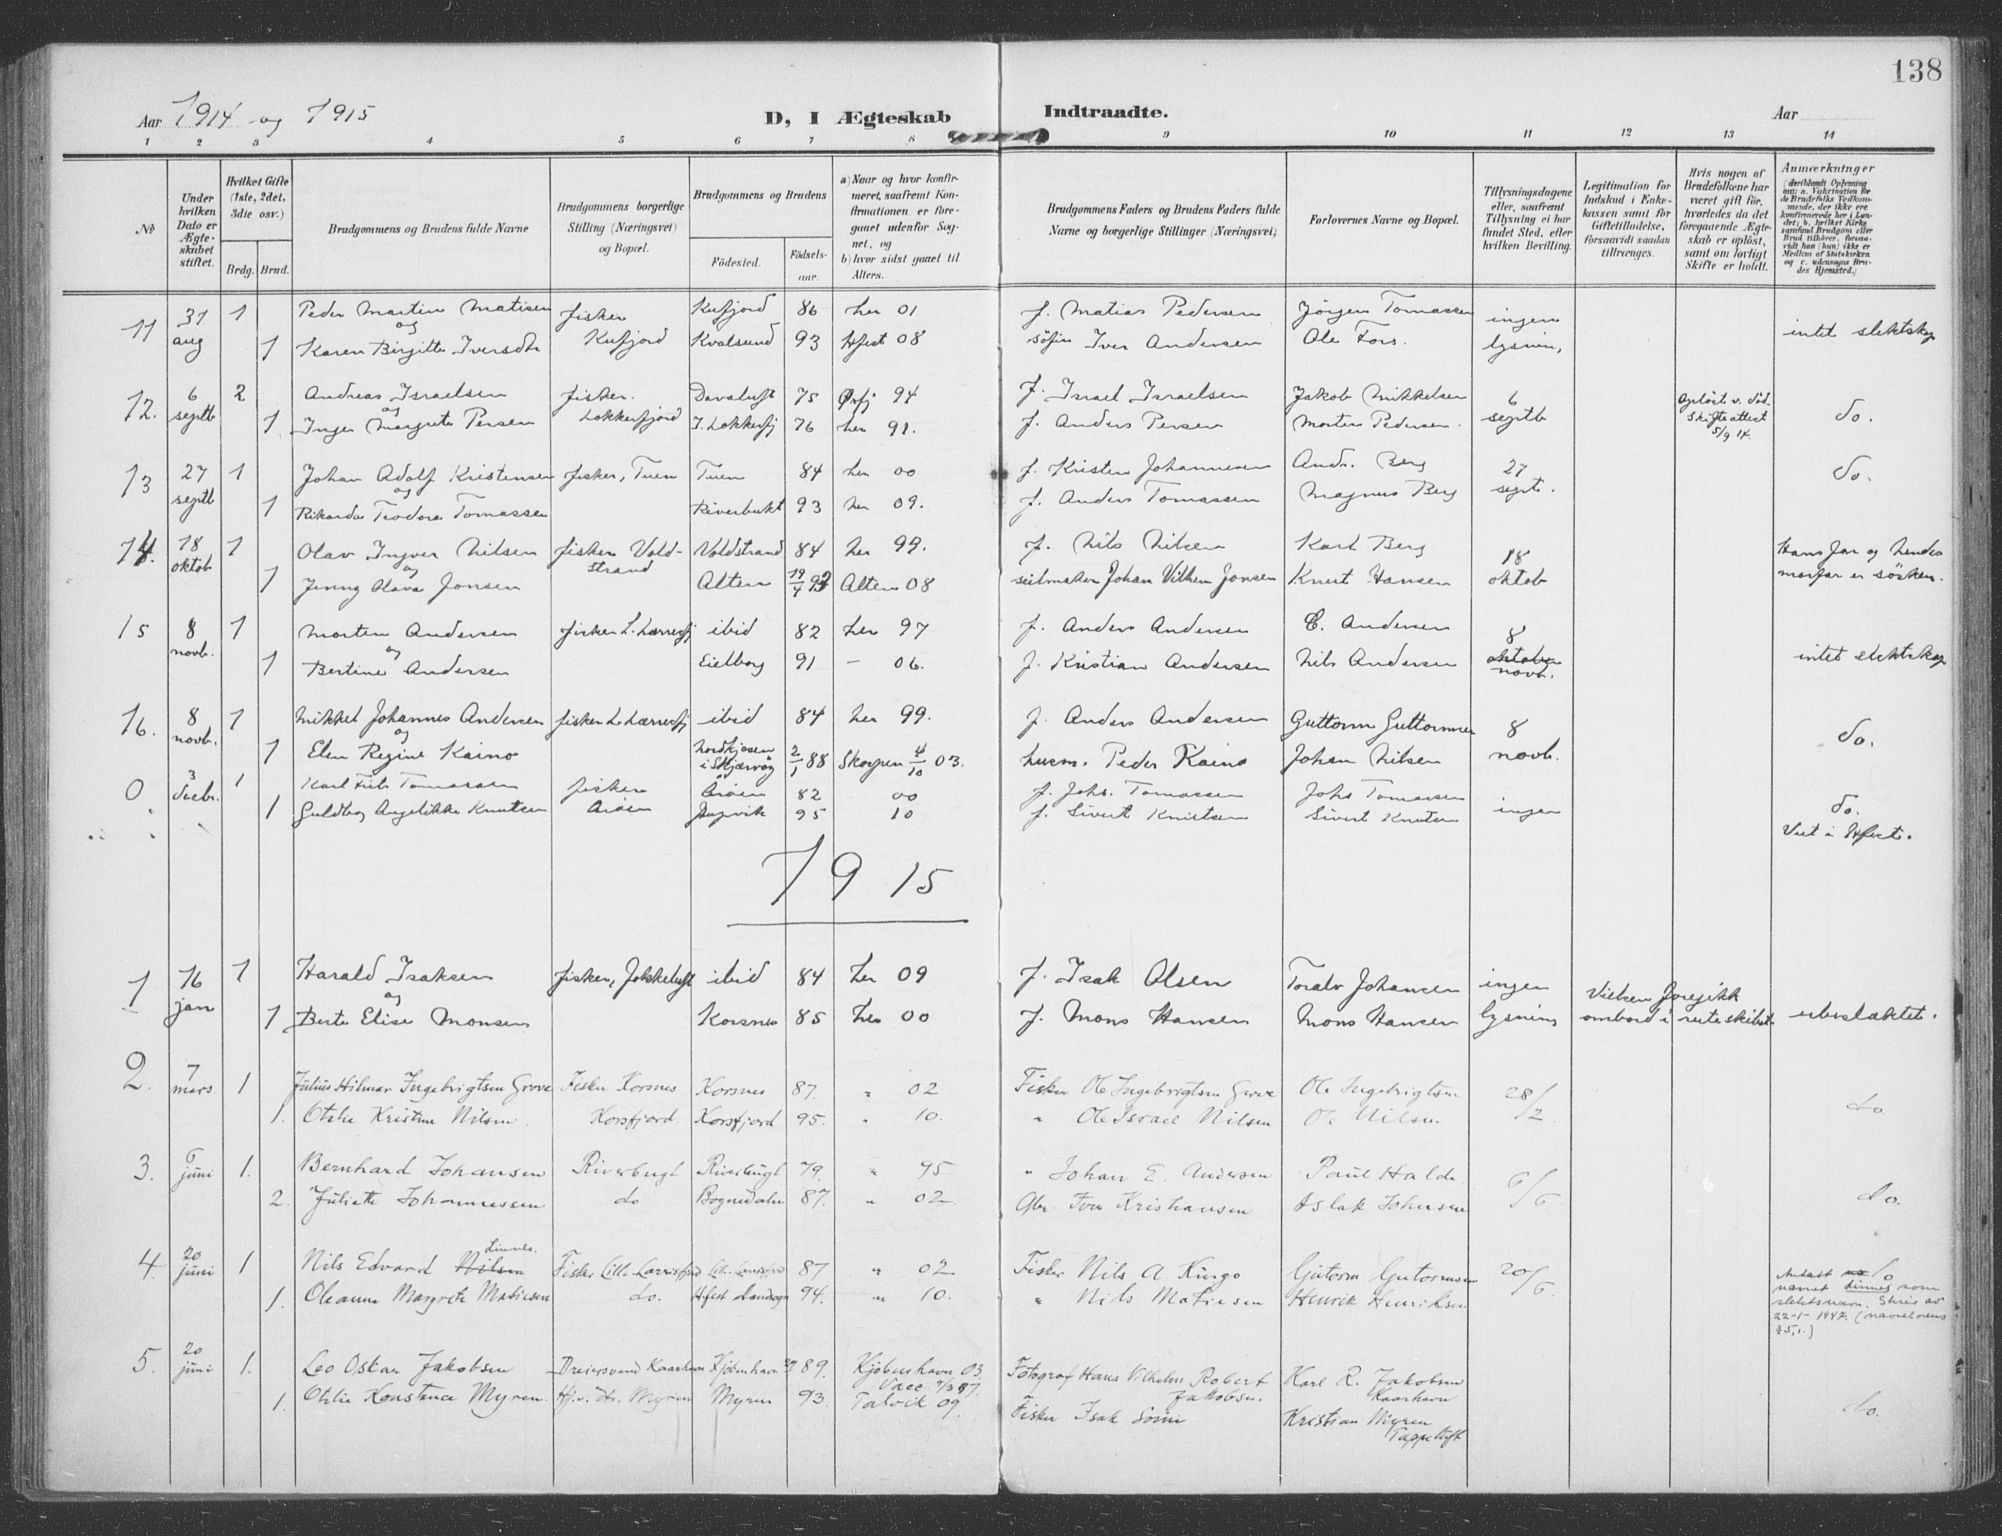 138
Aar 1914 og 1915 D, I Ægteskab Indtraadte. Aar
1 2 3 4 5 6 7 8 9 10 11 12 13 14
№
Under hvilken Dato er Ægteskabet stiftet.
Hvilket Gifte (1ste, 2det, 3die osv.)
Brdg. Brud.
Brudgommens og Brudens fulde Navne
Brudgommens borgerlige Stilling (Næringsvei) og Bopæl.
Brudgommens og Brudens
Fødested. Fødselsaar.
a) Naar og hvor konfirmeret, saafremt Konfirmationen er foregaaet udenfor Sognet, og
b) hvor sidst gaaet til Alters.
Brudgommens Faders og Brudens Faders fulde Navne og borgerlige Stillinger (Næringsvei)
Forlovernes Navne og Bopæl.
Tillysningsdagene eller, saafremt Tillysning ei har fundet Sted, efter hvilken Bevilling.
Legitimation for Indskud i Enkekassen samt for Giftetilladelse, forsaavidt saadan tiltrænges.
Hvis nogen af Brudefolkene har været gift før, hvorledes da det foregaaende Ægteskab er opløst, samt om lovligt Skifte er holdt.
Anmærkninger
11 31 aug 1 Peder Martin Matisen fisker Kufjord 86 her 01 f. Matias Pedersen Jørgen Tomassen ingen intet slektskap
og
1 Karen Birgitte Iversdtr Kufjord Kvalsund 93 Hfest 08 Iver Andersen Ole Fors. lysnin,
12. 6 septb 2 Andreas Israelsen fisker. 75 94 f. Israel Israelsen Jakob Mikkelsen 6 septb Opløst v. død. Skifteattest 5/9 14. do.
og
1 Inger Margrete Persen Lokkerfjord I. Lokkerfj 76 her 91. f. Anders Persen Morten Pedersen.
13 27 septb 1 Johan Adolf Kristensen fisker, Tuen Tuen 84 her 00 f. Kristen Johannesen Andr. Berg 27 sept. do.
og
1 Rikarda Teodora Tomassen Riverbukt 93 her 09. f. Anders Tomassen Magnus Berg
14. 18 oktob 1 Olav Ingver Nilsen fisker Voldstrand Voldstrand 84 her 99. f. Nils Nilsen Karl Berg 18 oktob Hans far og hendes morfar er søsken.
og
1 Jenny Olava Jonsen Alten 19/4 92 Alten 08 seilmaker Johan Vilhem Jonsen Knut Hansen
15 8 novb. 1 Morten Andersen fisker L. Lærresfj ibid 82 her 97 f. Anders Andersen C. Andersen 8 oktober novb. intet slektskap
og
1 Bertine Andersen Eielborg 91 — 06. f. Kristian Andersen Nils Andersen
16. 8 novb. 1 Mikkel Johannes Andersen fisker L. Lærresfj ibid 84 her 99. f. Anders Andersen Guttorm Guttormsen 8 novb. do.
og
1 Elen Regine Kaino Nordkjosen i Skjærvøy 2/1 88 Skorpen 4/10 03. husm. Peder Kaino Johan Nilsen
0 3 decbr. 1 Karl Fitis Tomassen fisker Årøen 82 00 f. Johs. Tomassen Johs Tomassen ingen do.
1 Guldborg Angelikke Knutsen Årøen 95 10 f. Sivert Knutsen Sivert Knutsen Viet i Hfest.
1915
1 16 jan 1 Harald Isaksen fisker, Jokkeluft ibid 84 her 09 f. Isak Olsen Toralv Johansen ingen lysning Vielsen foregikk ombord i ruteskibet ubeslæktet.
og
1 Berte Elise Monsen Korsnes 85 her 00 f. Mons Hansen Mons Hansen
2. 7 mars 1 Julius Hilmar Ingebrigtsen Grove Fisker Korsnes Korsnes 87. " 02 Fisker Ole Ingebrigtsen Grove Ole Ingebrigtsen 28/2 do.
1. Otelie Kristine Nilsen Korsfjord. Korsfjord 95. " 10. " Ole Israel Nilsen Ole Nilsen
3. 6 juni 1. Bernhard Johansen Riverbugt Riverbugt 79. " 95 " Johan E. Andersen Paul Halde 6/6 do.
2. Juliette Johannessen do Bognedalen 87. " 02 Gbr. Iver Kristiansen Aslak Johnsen
4. 20 juni 1 Nils Edvard Nilsen Linnes. Fisker Lille Lærrisfjord 87 " 02 Fisker Nils A. Kurgo Gutorm Gutormsen 20/6 do
1. Oleanne Margrete Matisen do. Hfest Landsogn 94. " 10. " Nils Matisen Henrik Henriksen
Antatt navnet Linnes som slektsnavn. Skriv av 22-1-1947. (navnelovens § 5,1.)
5. 20 juni 1. Leo Oskar Jakobsen Dreiersvend Kaarhavn Kjøbenhavn 89. Kjøbenhavn 03. Fotograf Hans Vilhelm Robert Jakobsen. Karl R. Jakobsen Kaarhavn do.
1. Otelie Konstance Myren. Myren Myren 93. Talvik 09. Fisker Isak Kristian Myren